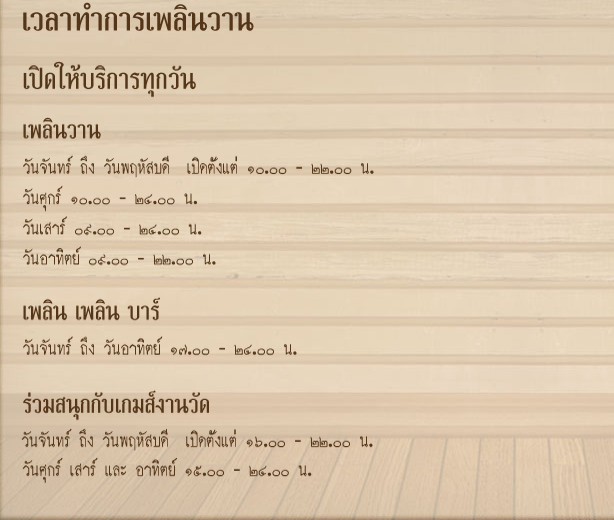 เวลาทำการเพลินวาน
เปิดให้บริการทุกวัน
เพลินวาน
วันจันทร์ ถึง วันพฤหัสบดี เปิดตั้งแต่ ๑๐.๐๐ - ๒๒.๐๐ น.
วันศุกร์ ๑๐.๐๐ - ๒๔.๐๐ น.
วันเสาร์ ๐๙.๐๐ - ๒๔.๐๐ น.
วันอาทิตย์ ๐๙.๐๐ - ๒๒.๐๐ น.
เพลิน เพลิน บาร์
วันจันทร์ ถึง วันอาทิตย์ ๑๗.๐๐ - ๒๔.๐๐ น.
ร่วมสนุกกับเกมส์งานวัด
วันจันทร์ ถึง วันพฤหัสบดี เปิดตั้งแต่ ๑๖.๐๐ - ๒๒.๐๐ น.
วันศุกร์ เสาร์ และ อาทิตย์ ๑๕.๐๐ - ๒๔.๐๐ น.